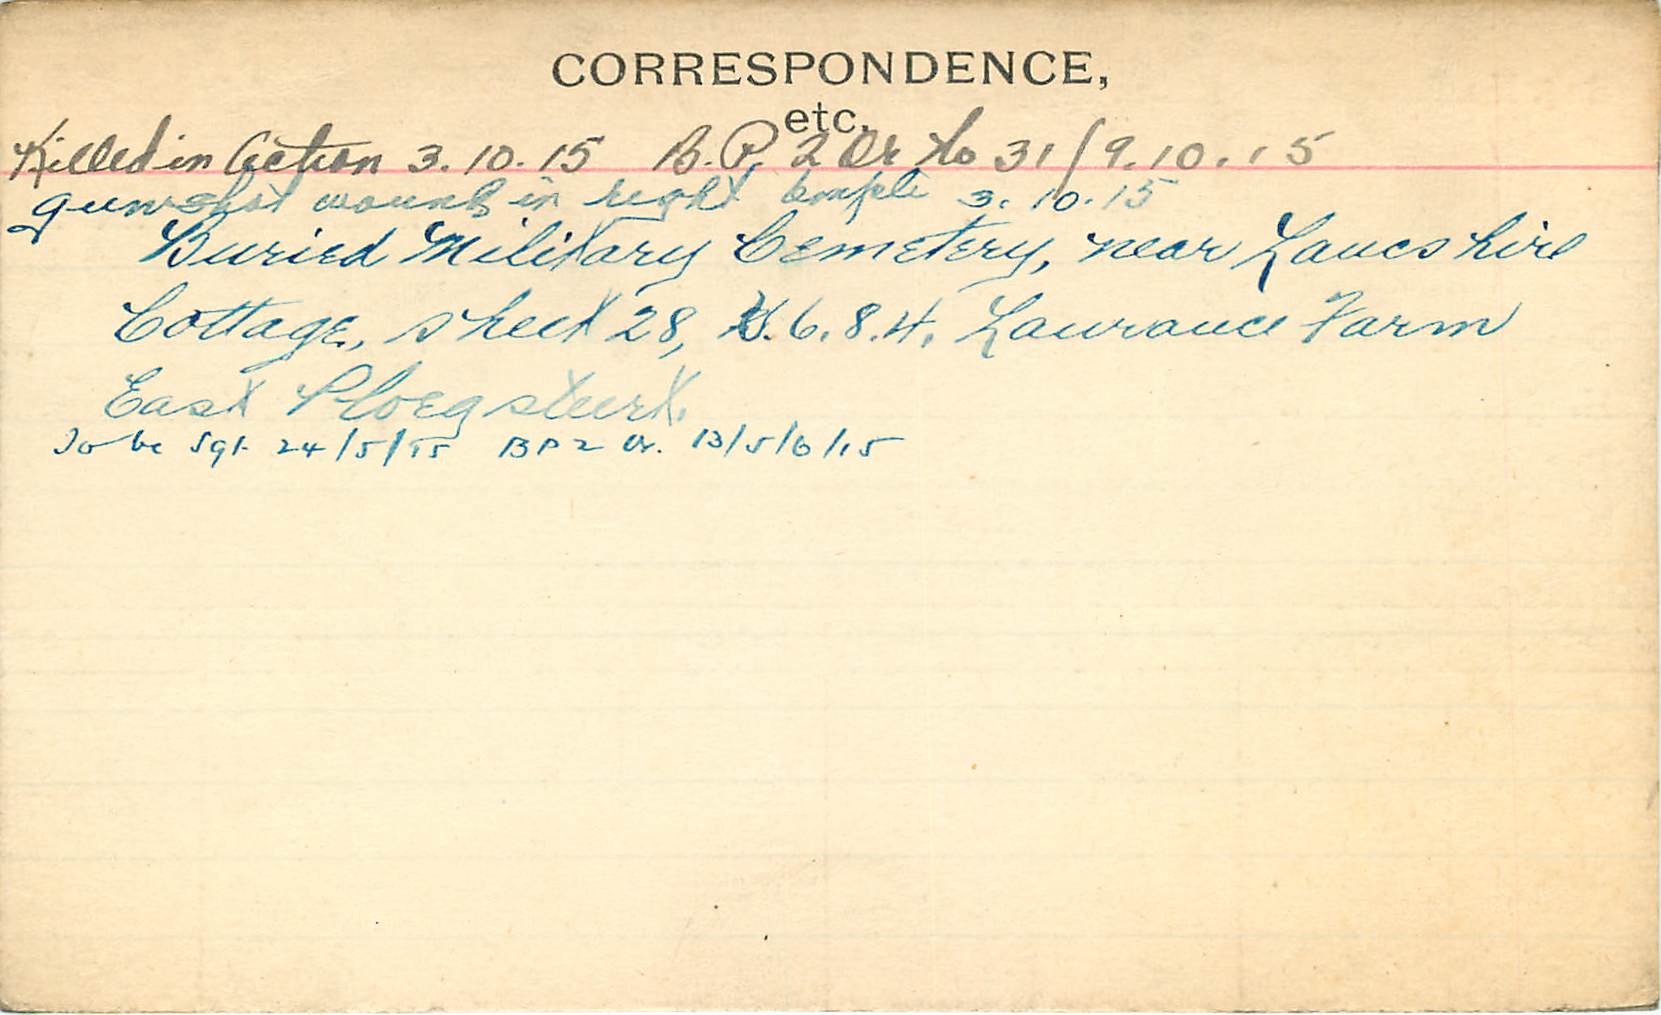 CORRESPONDENCE,
etc.
Killed in Action 3.10.15 B.P. 2 Or No 31/9.10.15
gunshot wound in right temple 3.10.15
Buried Military Cemetery, near Lancshire
Cottage, sheet 28, U.6.8.4. Laurance Farm
East Ploegsteert.
To be Sgt. 24/5/15 BP2 Or. 13/5/6/15